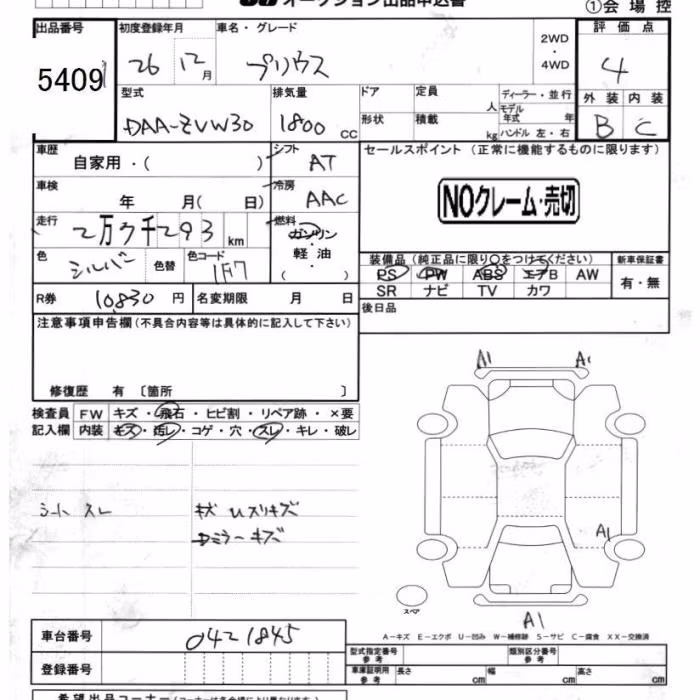 オークション出品申込書
①会場控
出品番号 初度登録年月 車名・グレード 評価点
5409 26 12月 プリウス 2WD・4WD 4
型式 排気量 ドア 定員 人 ディーラー・並行 外装 内装
DAA-ZVW30 1800 CC 形状 積載 kg モデル年式 年 ハンドル 左・右 B C
車歴 自家用・( ) シフト AT セールスポイント (正常に機能するものに限ります)
車検 年 月( 日) 冷房 AAC NOクレーム・売切
走行 2万7千293 km 燃料 ガソリン・軽油・( )
色 シルバー 色替 色コード 1F7
装備品 (純正品に限り○をつけてください) 新車保証書
PS PW ABS エアB AW 有・無
SR ナビ TV カワ
R券 10,830 円 名変期限 月 日 後日品
注意事項申告欄 (不具合内容等は具体的に記入して下さい)
修復歴 有 〔箇所 〕
検査員 FW キズ・飛石・ヒビ割・リペア跡・×要
記入欄 内装 キズ・汚レ・コゲ・穴・スレ・キレ・破レ
シート スレ
キズ Uスリキズ
ミラーキズ
A1 A1
A1
スペア
A1
A-キズ E-エクボ U-凹み W-補修跡 S-サビ C-腐食 XX-交換済
車台番号 0421845
型式指定番号 参考 類別区分番号 参考
登録番号 車庫証明用 参考 長さ cm 幅 cm 高さ cm
希望出品コーナー